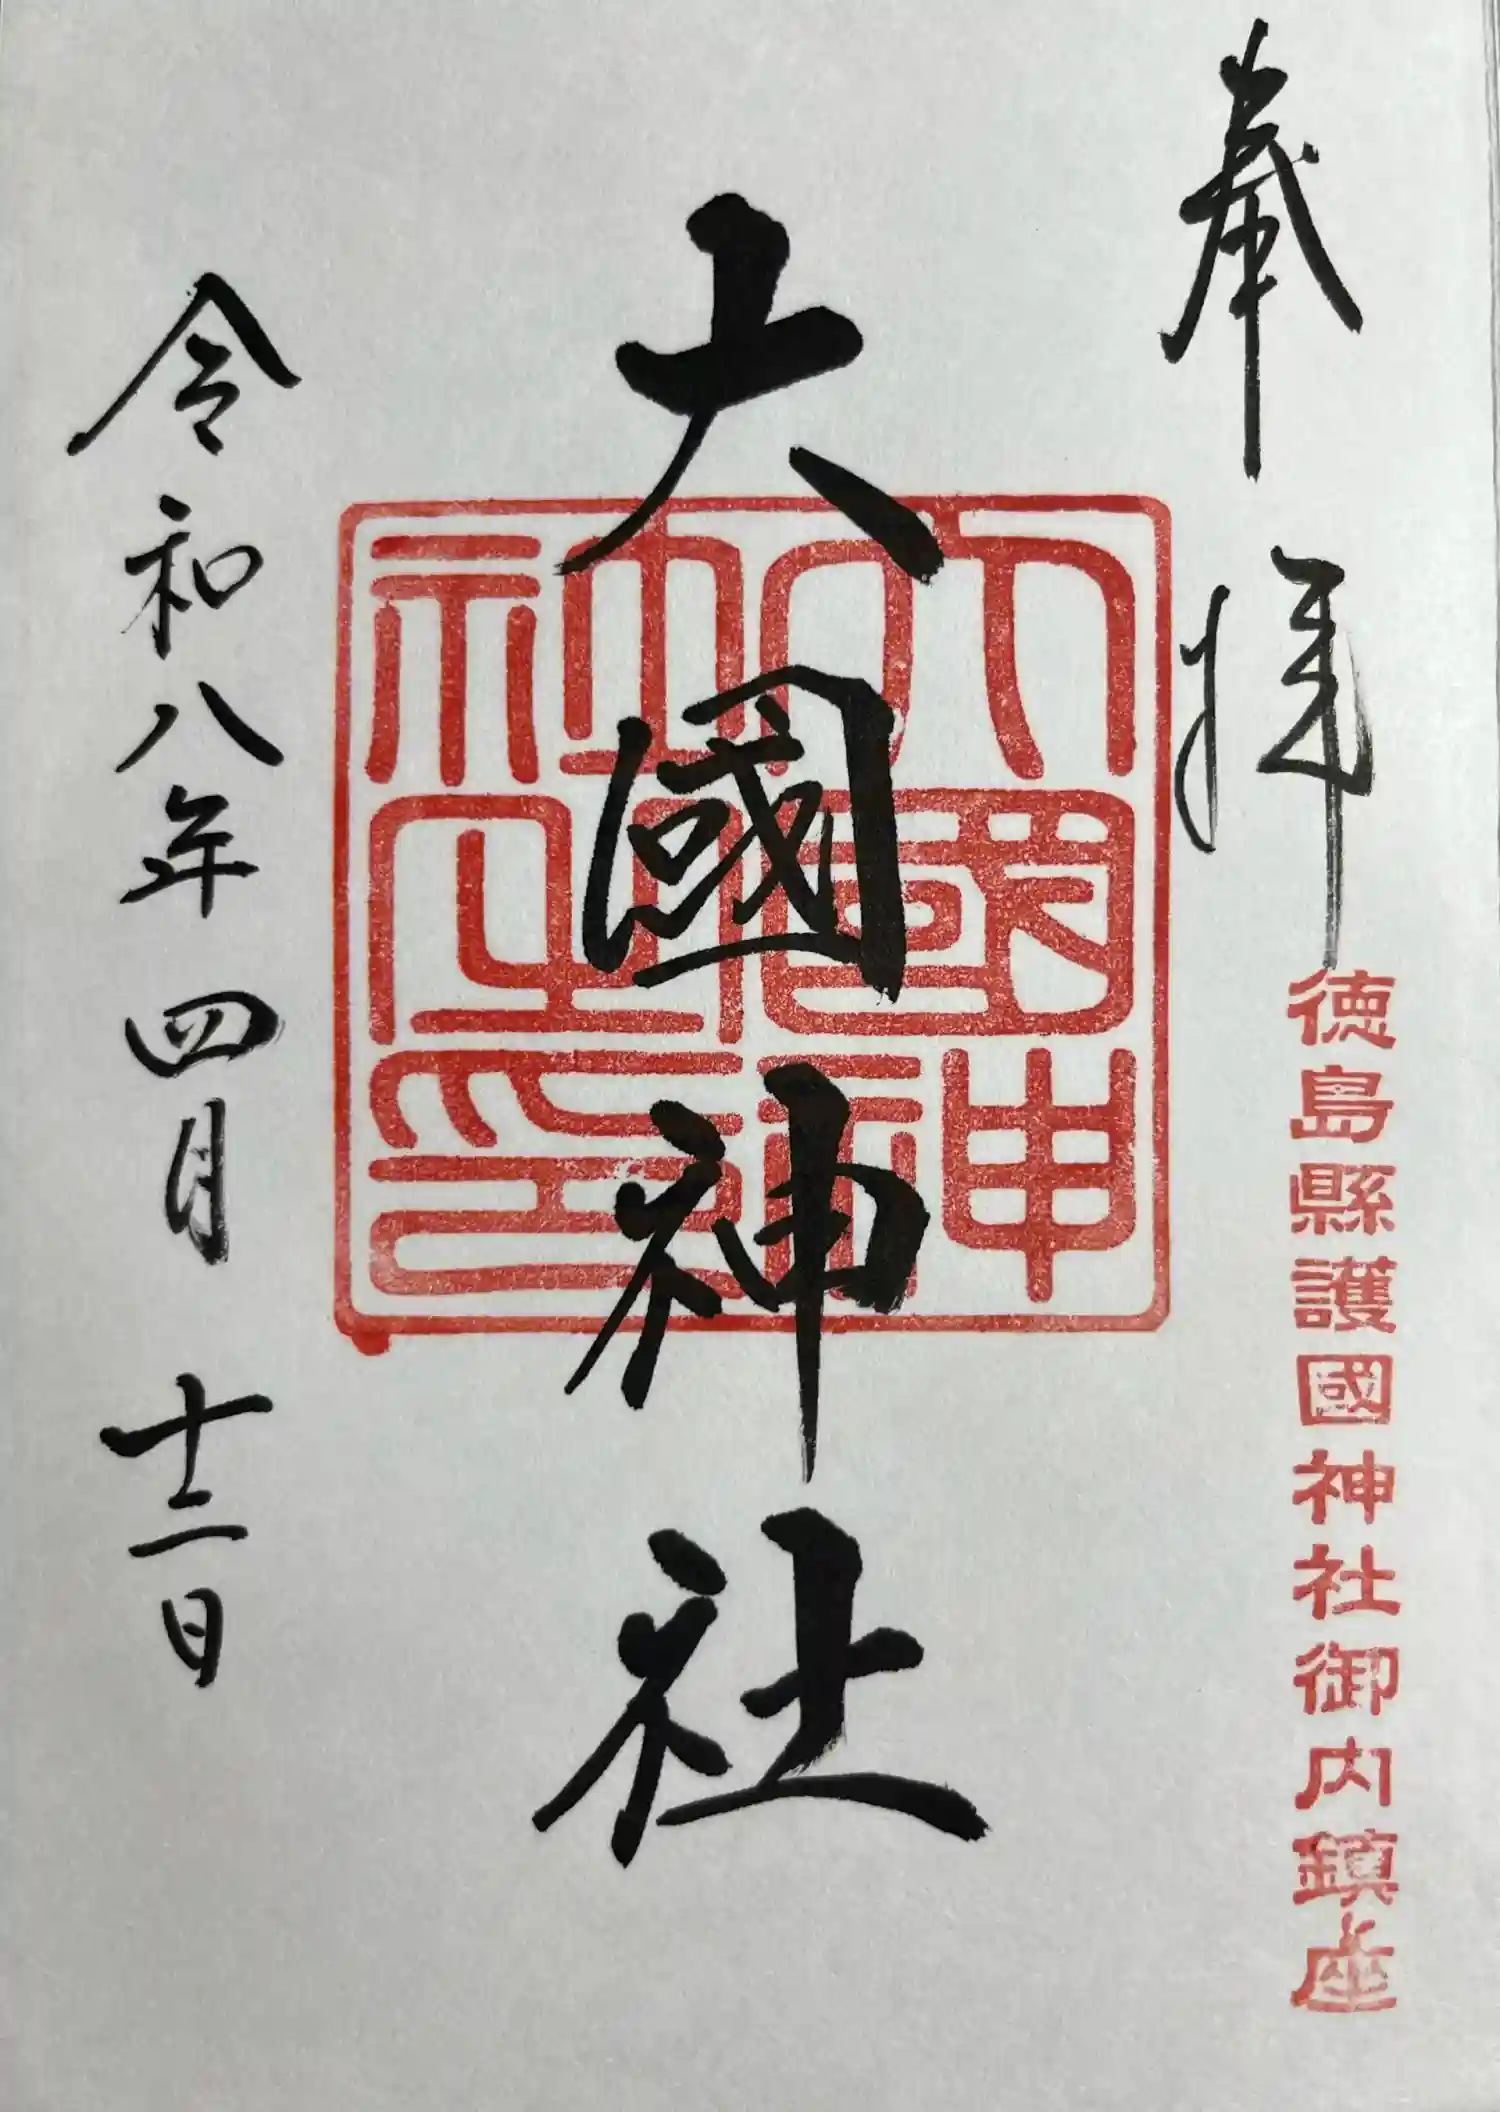 奉拝
徳島縣護國神社御内鎮座
大國神社
大國神社之印
令和八年四月十二日